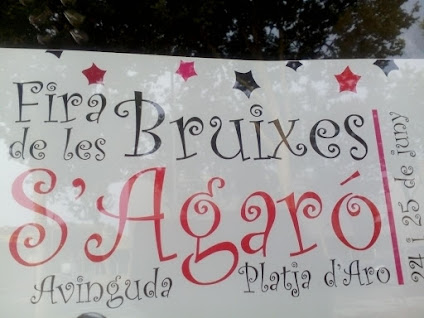 Fira
de les Bruixes
S'Agaró
Avinguda Platja d'Aro
24 i 25 de juny